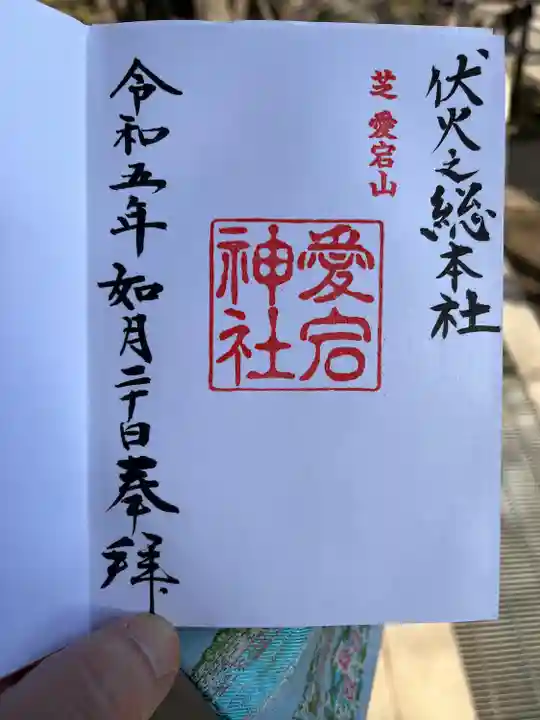 伏火之総本社
芝 愛宕山
愛宕
神社
令和五年如月二十日奉拝